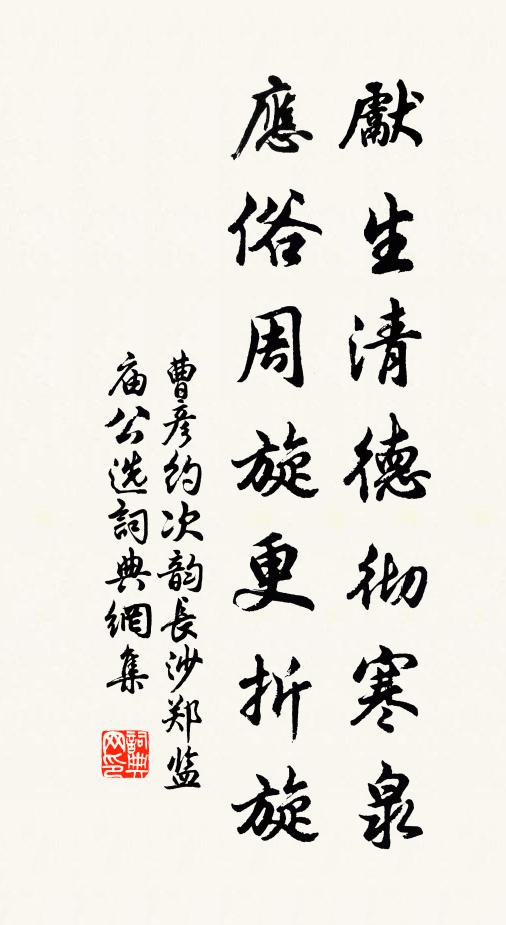 獻生清德彻寒泉
應俗周旋更折旋
曹彦约次韵長沙郑监
庙公选詞典網集
詞典网印